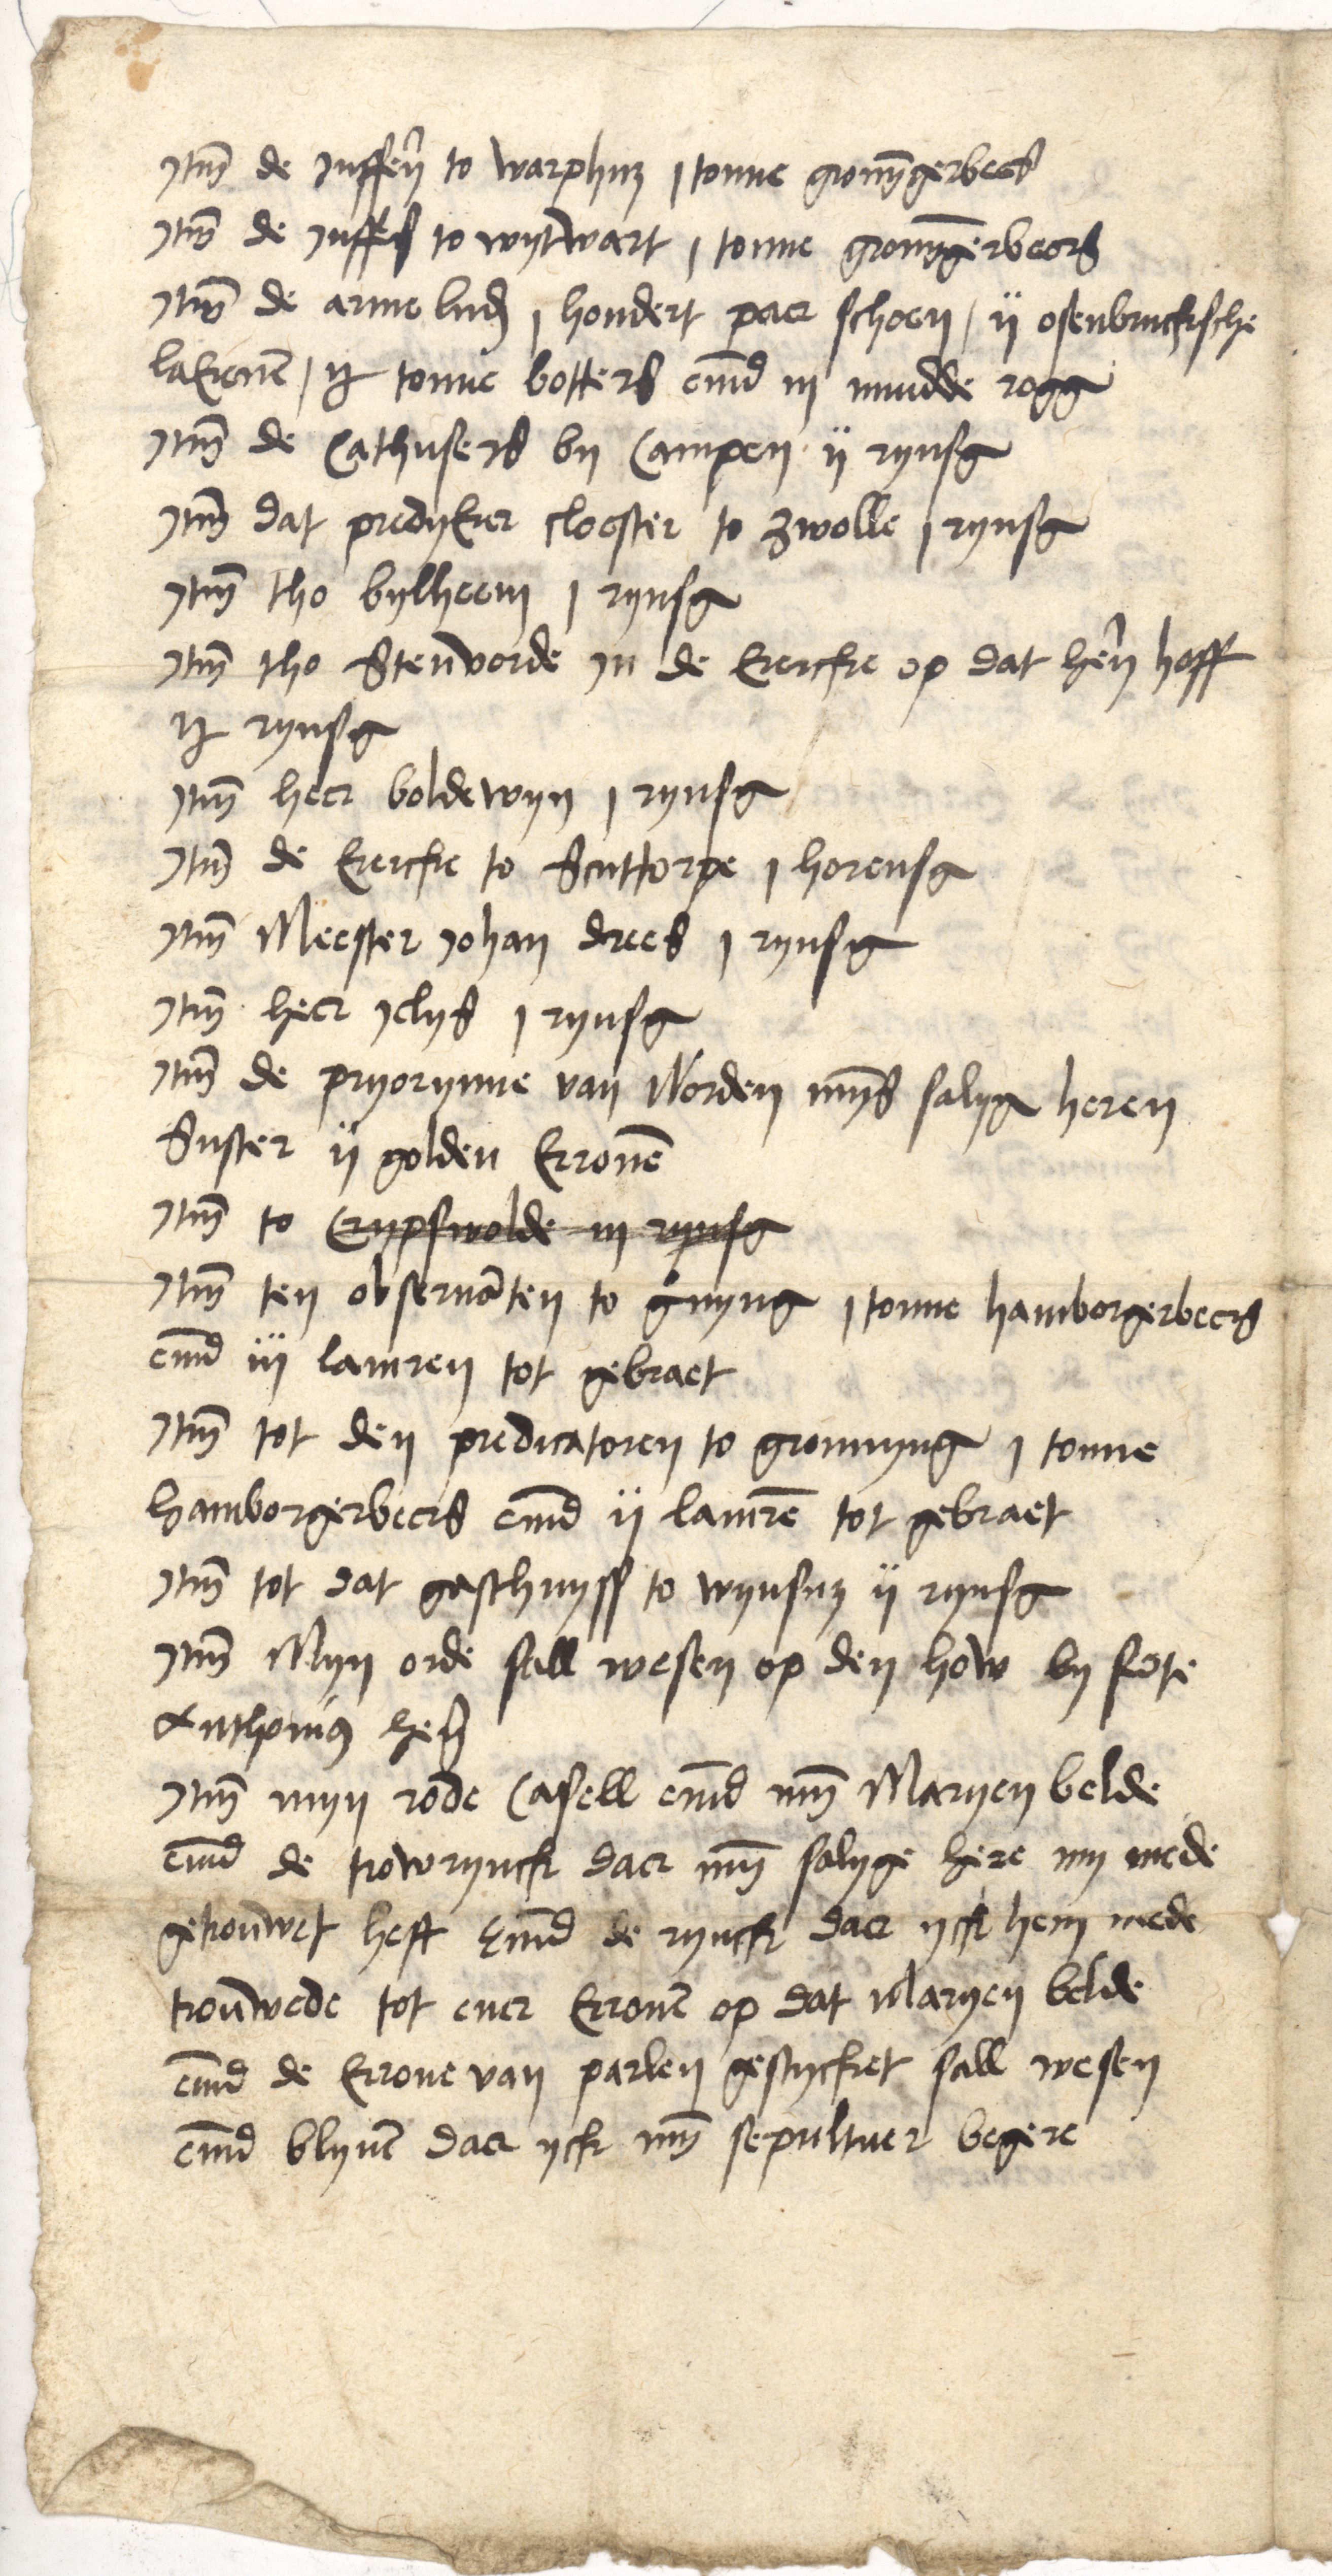 Item de Juffern to Warphum j tonne gronyngerbeers
Item de Juffers to wytwart j tonne gronyngerbeers
Item de arme luden j hondert paer schoen / ij osenbrucksche
lakenen / ij tonne botters ennd iij mudde rogg
Item de Cathusers by Campen ij rynsg
Item dat predyker cloester to Zwolle j rynsg
Item tho bylheem j rynsg
Item tho Stenvorde in de kercke op dat hern hoff
ij rynsg
Item heer boldewyn j rynsg
Item de kercke to Scuttorpe j horensg
Item Meester Johan drees j rynsg
Item heer Jelys j rynsg
Item de pryorynne van Vorden myns salyg heren
suster ij golden kronen
Item to Crypswolde iij rynsg
Item ten observanten to gnyng j tonne hamborgerbeers
ennd iij lamren tot gebraet
Item tot den predicatoren to gronnyng j tonne
hamborgerbeers ennd ij lamren tot gebraet
Item tot dat gasthuyss to wynsum ij rynsg
Item Myn orde sall wesen op den how by sunte
Anthonius hern
Item myn rode Casell ennd myn Maryen belde
ennd de trowrynck daer myn salyge here my mede
getrouwet heft Ennd de rynck daer yck hem mede
trouwede tot ener kronen op dat Maryen belde
ennd de krone van parlen gestycket sall wesen
ennd blyven daer yck myn sepultuer begere